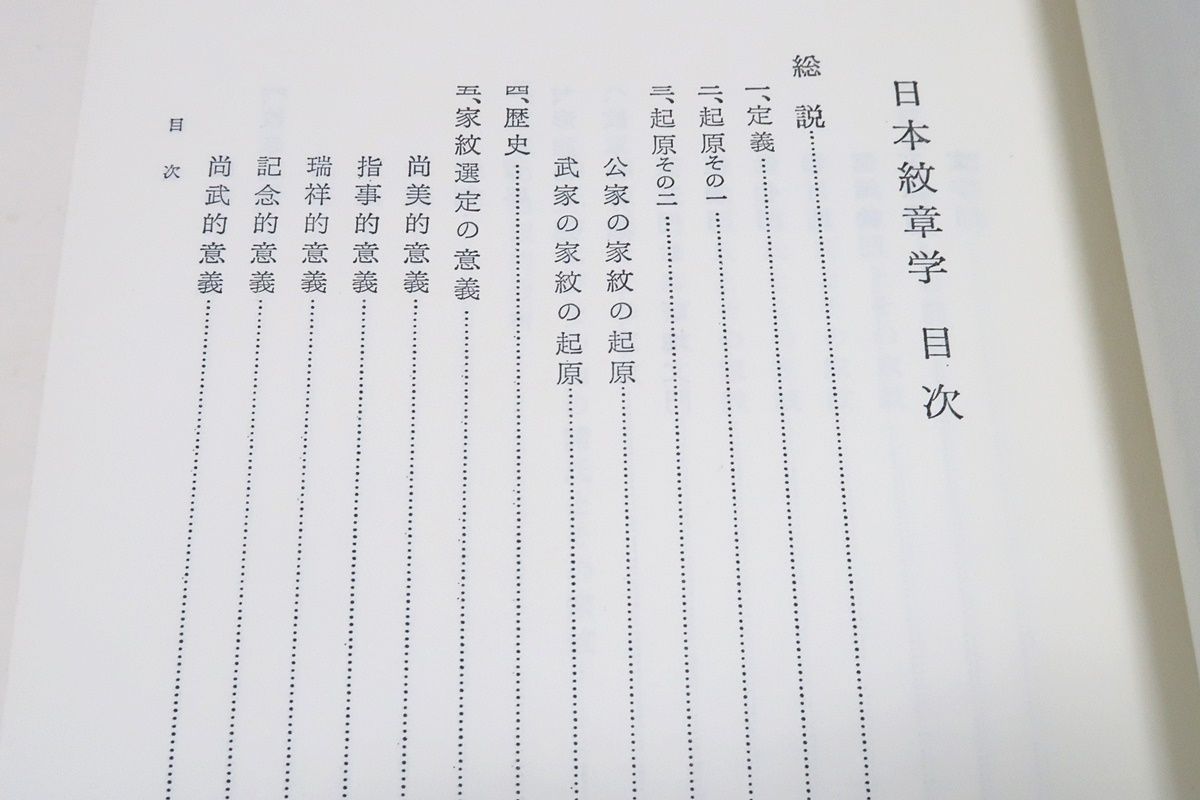 日本紋章学　目次
総説
一、定義
二、起原その一
三、起原その二
公家の家紋の起原
武家の家紋の起原
四、歴史
五、家紋選定の意義
尚美的意義
指事的意義
瑞祥的意義
記念的意義
尚武的意義
目次